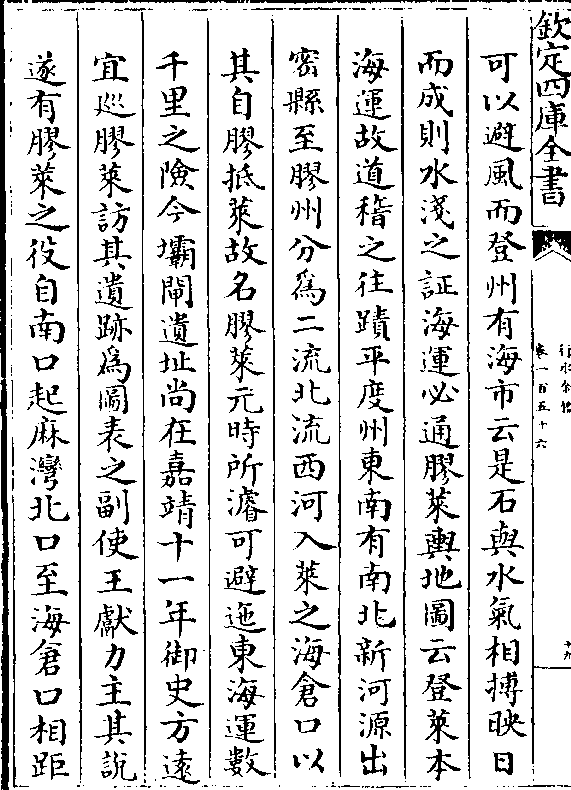 欽定四庫全書
行水金鑑
卷一百五十六
十九
可以避風而登州有海市云是石與水氣相搏映日
而成則水淺之証海運必通膠萊輿地圖云登萊本
海運故道稽之往蹟平度州東南有南北新河源出
密縣至膠州分為二流北流西河入萊之海倉口以
其自膠抵萊故名膠萊元時所濬可避迤東海運數
千里之險今壩閘遺址尚在嘉靖十一年御史方遠
宜廵膠萊訪其遺跡為圖表之副使王獻力主其說
遂有膠萊之役自南口起麻灣北口至海倉口相距